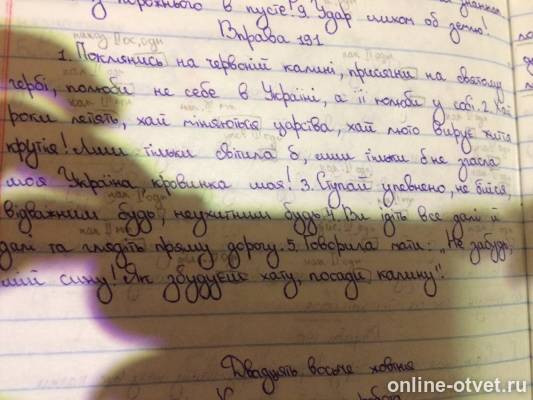 порожнього в пусте! 9. Удар лихом об землю!
Вправа 191
1. Поклянись на червоній калині, присягни на святому
гербі, полюби не себе в Україні, а її полюби у собі. 2. Хай
роки летять, хай міняються царства, хай люто вирує життя
крутія! Лиш тільки світила б, лиш тільки б не згасла
моя Україна кровинка моя! 3. Ступай упевнено, не бійся,
відважним будь, неухитним будь. 4. Ви ідіть все далі й
далі та глядіть пряму дорогу. 5. Говорила мати: „Не забудь,
мій сину! Як збудуєш хату, посади калину".
Двадцять восьме жовтня
online-otvet.ru